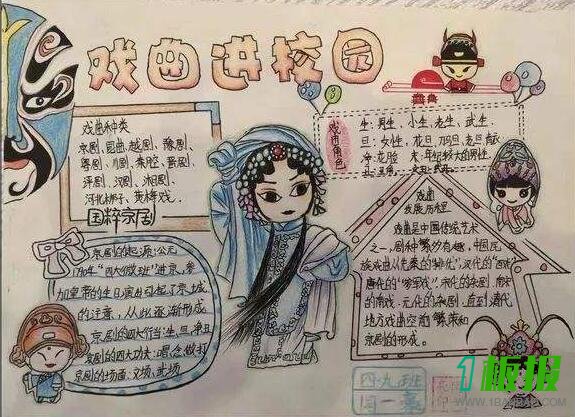 戏曲进校园
戏曲种类
京剧、昆曲、越剧、豫剧、
粤剧、川剧、秦腔、晋剧、
评剧、汉剧、湘剧、
河北梆子、黄梅戏、
国粹京剧
京剧的起源:公元
1790年"四大徽班"进京,参
加皇帝的生日演出引起了京城
的注意,从此逐渐形成
京剧的四大行当:生、旦、净、丑
京剧的四大功夫:唱、念、做、打
京剧的场面:文场、武场
戏曲角色
生:男生、小生、老生、武生、
旦:女性、花旦、刀马旦、老旦
净:花脸 末:年纪较大的男性、
丑:丑角
戏曲
发展历史
戏曲是中国传统艺术
之一,剧种繁多有趣,中国民
族戏曲从先秦的"俳优"、汉代的"百戏"
唐代的"参军戏"、宋代的杂剧、南宋
的南戏、元代的杂剧、直到清代
地方戏曲空前繁荣和
京剧的形成。
四九班
1板报